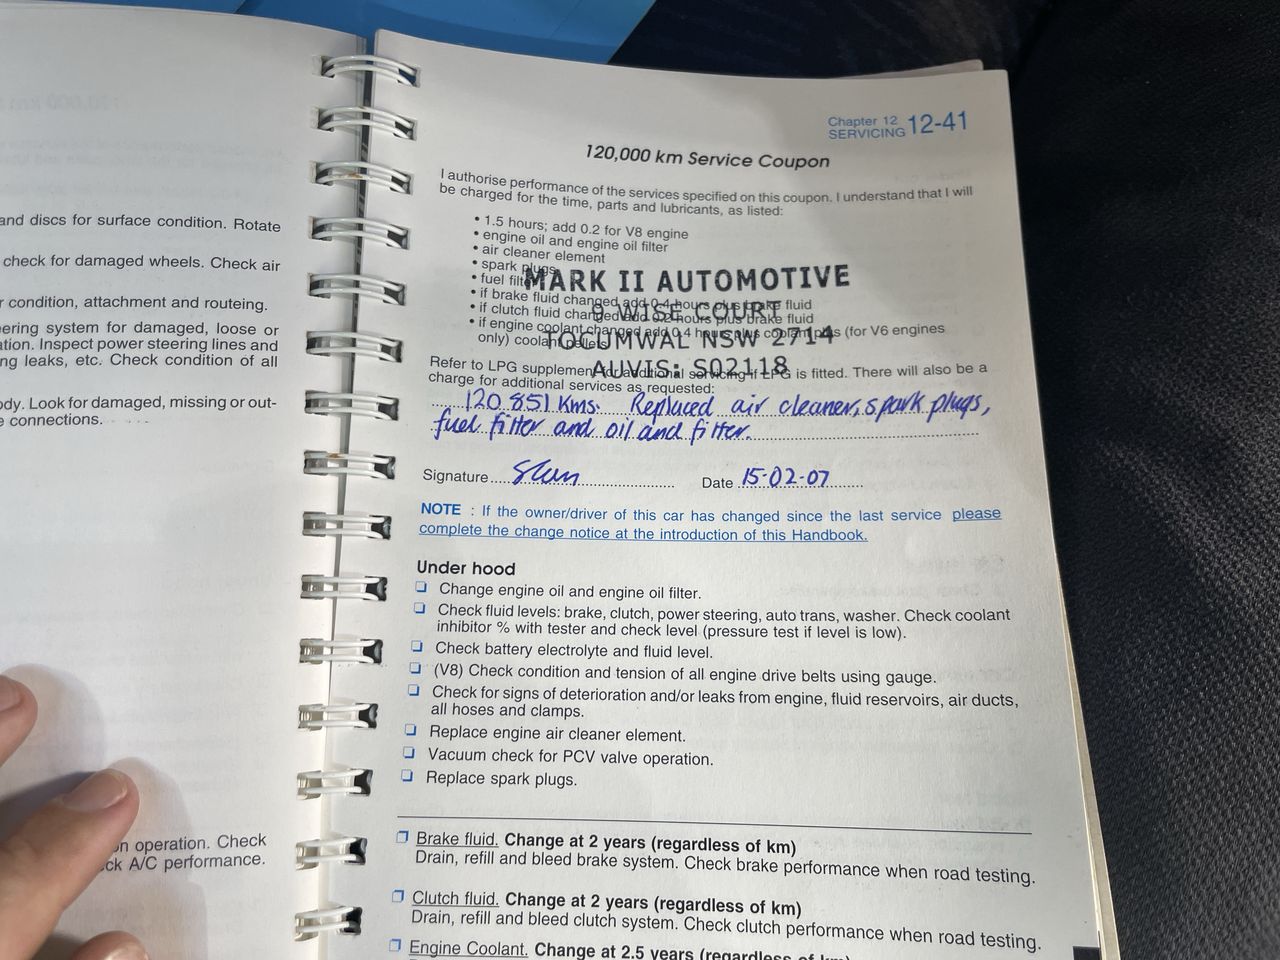 and discs for surface condition. Rotate
check for damaged wheels. Check air
r condition, attachment and routeing.
eering system for damaged, loose or
ation. Inspect power steering lines and
ng leaks, etc. Check condition of all
ody. Look for damaged, missing or out-
e connections.
on operation. Check
ck A/C performance.
Chapter 12
SERVICING 12-41
120,000 km Service Coupon
I authorise performance of the services specified on this coupon. I understand that I will
be charged for the time, parts and lubricants, as listed:
• 1.5 hours; add 0.2 for V8 engine
• engine oil and engine oil filter
• air cleaner element
• spark plugs
• fuel filter
MARK II AUTOMOTIVE
• if brake fluid changed add 0.4 hours plus brake fluid
9 WISE COURT
• if clutch fluid changed add 0.2 hours plus brake fluid
• if engine coolant changed add 0.4 hours plus coolant plus (for V6 engines
TOCUMWAL NSW 2714
only) coolant pellets
AUVIS: S02118
Refer to LPG supplement for additional servicing if LPG is fitted. There will also be a
charge for additional services as requested:
120 851 Kms. Replaced air cleaner, spark plugs,
fuel filter and oil and filter.
Signature Date 15-02-07
NOTE : If the owner/driver of this car has changed since the last service please
complete the change notice at the introduction of this Handbook.
Under hood
❏ Change engine oil and engine oil filter.
❏ Check fluid levels: brake, clutch, power steering, auto trans, washer. Check coolant
inhibitor % with tester and check level (pressure test if level is low).
❏ Check battery electrolyte and fluid level.
❏ (V8) Check condition and tension of all engine drive belts using gauge.
❏ Check for signs of deterioration and/or leaks from engine, fluid reservoirs, air ducts,
all hoses and clamps.
❏ Replace engine air cleaner element.
❏ Vacuum check for PCV valve operation.
❏ Replace spark plugs.
❐ Brake fluid. Change at 2 years (regardless of km)
Drain, refill and bleed brake system. Check brake performance when road testing.
❐ Clutch fluid. Change at 2 years (regardless of km)
Drain, refill and bleed clutch system. Check clutch performance when road testing.
❐ Engine Coolant. Change at 2.5 years (regardless of km)